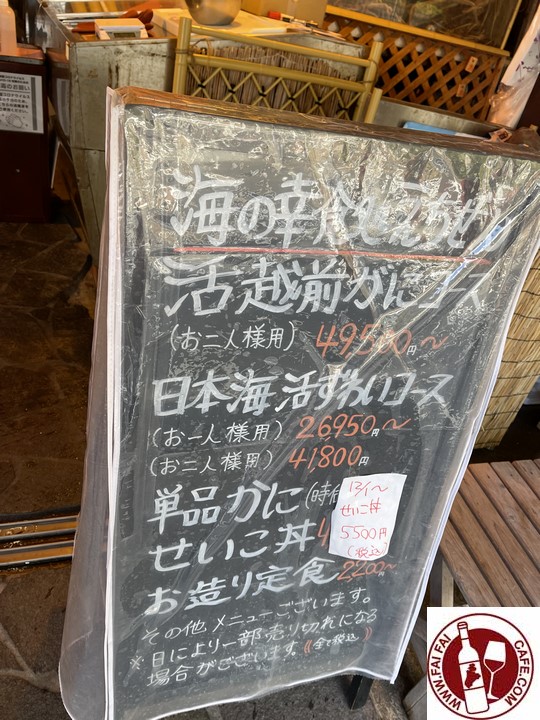 海の幸食処えちぜん
活越前がにコース
(お二人様用) 49500円〜
日本海活ずわいコース
(お一人様用) 26950円〜
(お二人様用) 41,800円
単品かに(時価
せいこ丼4
12/1〜
せいこ丼
5500円
(税込)
お造り定食2200円〜
その他メニューございます。
※日により一部売り切れになる
場合がございます。《全て税込》
WWW.FAIFAICAFE.COM